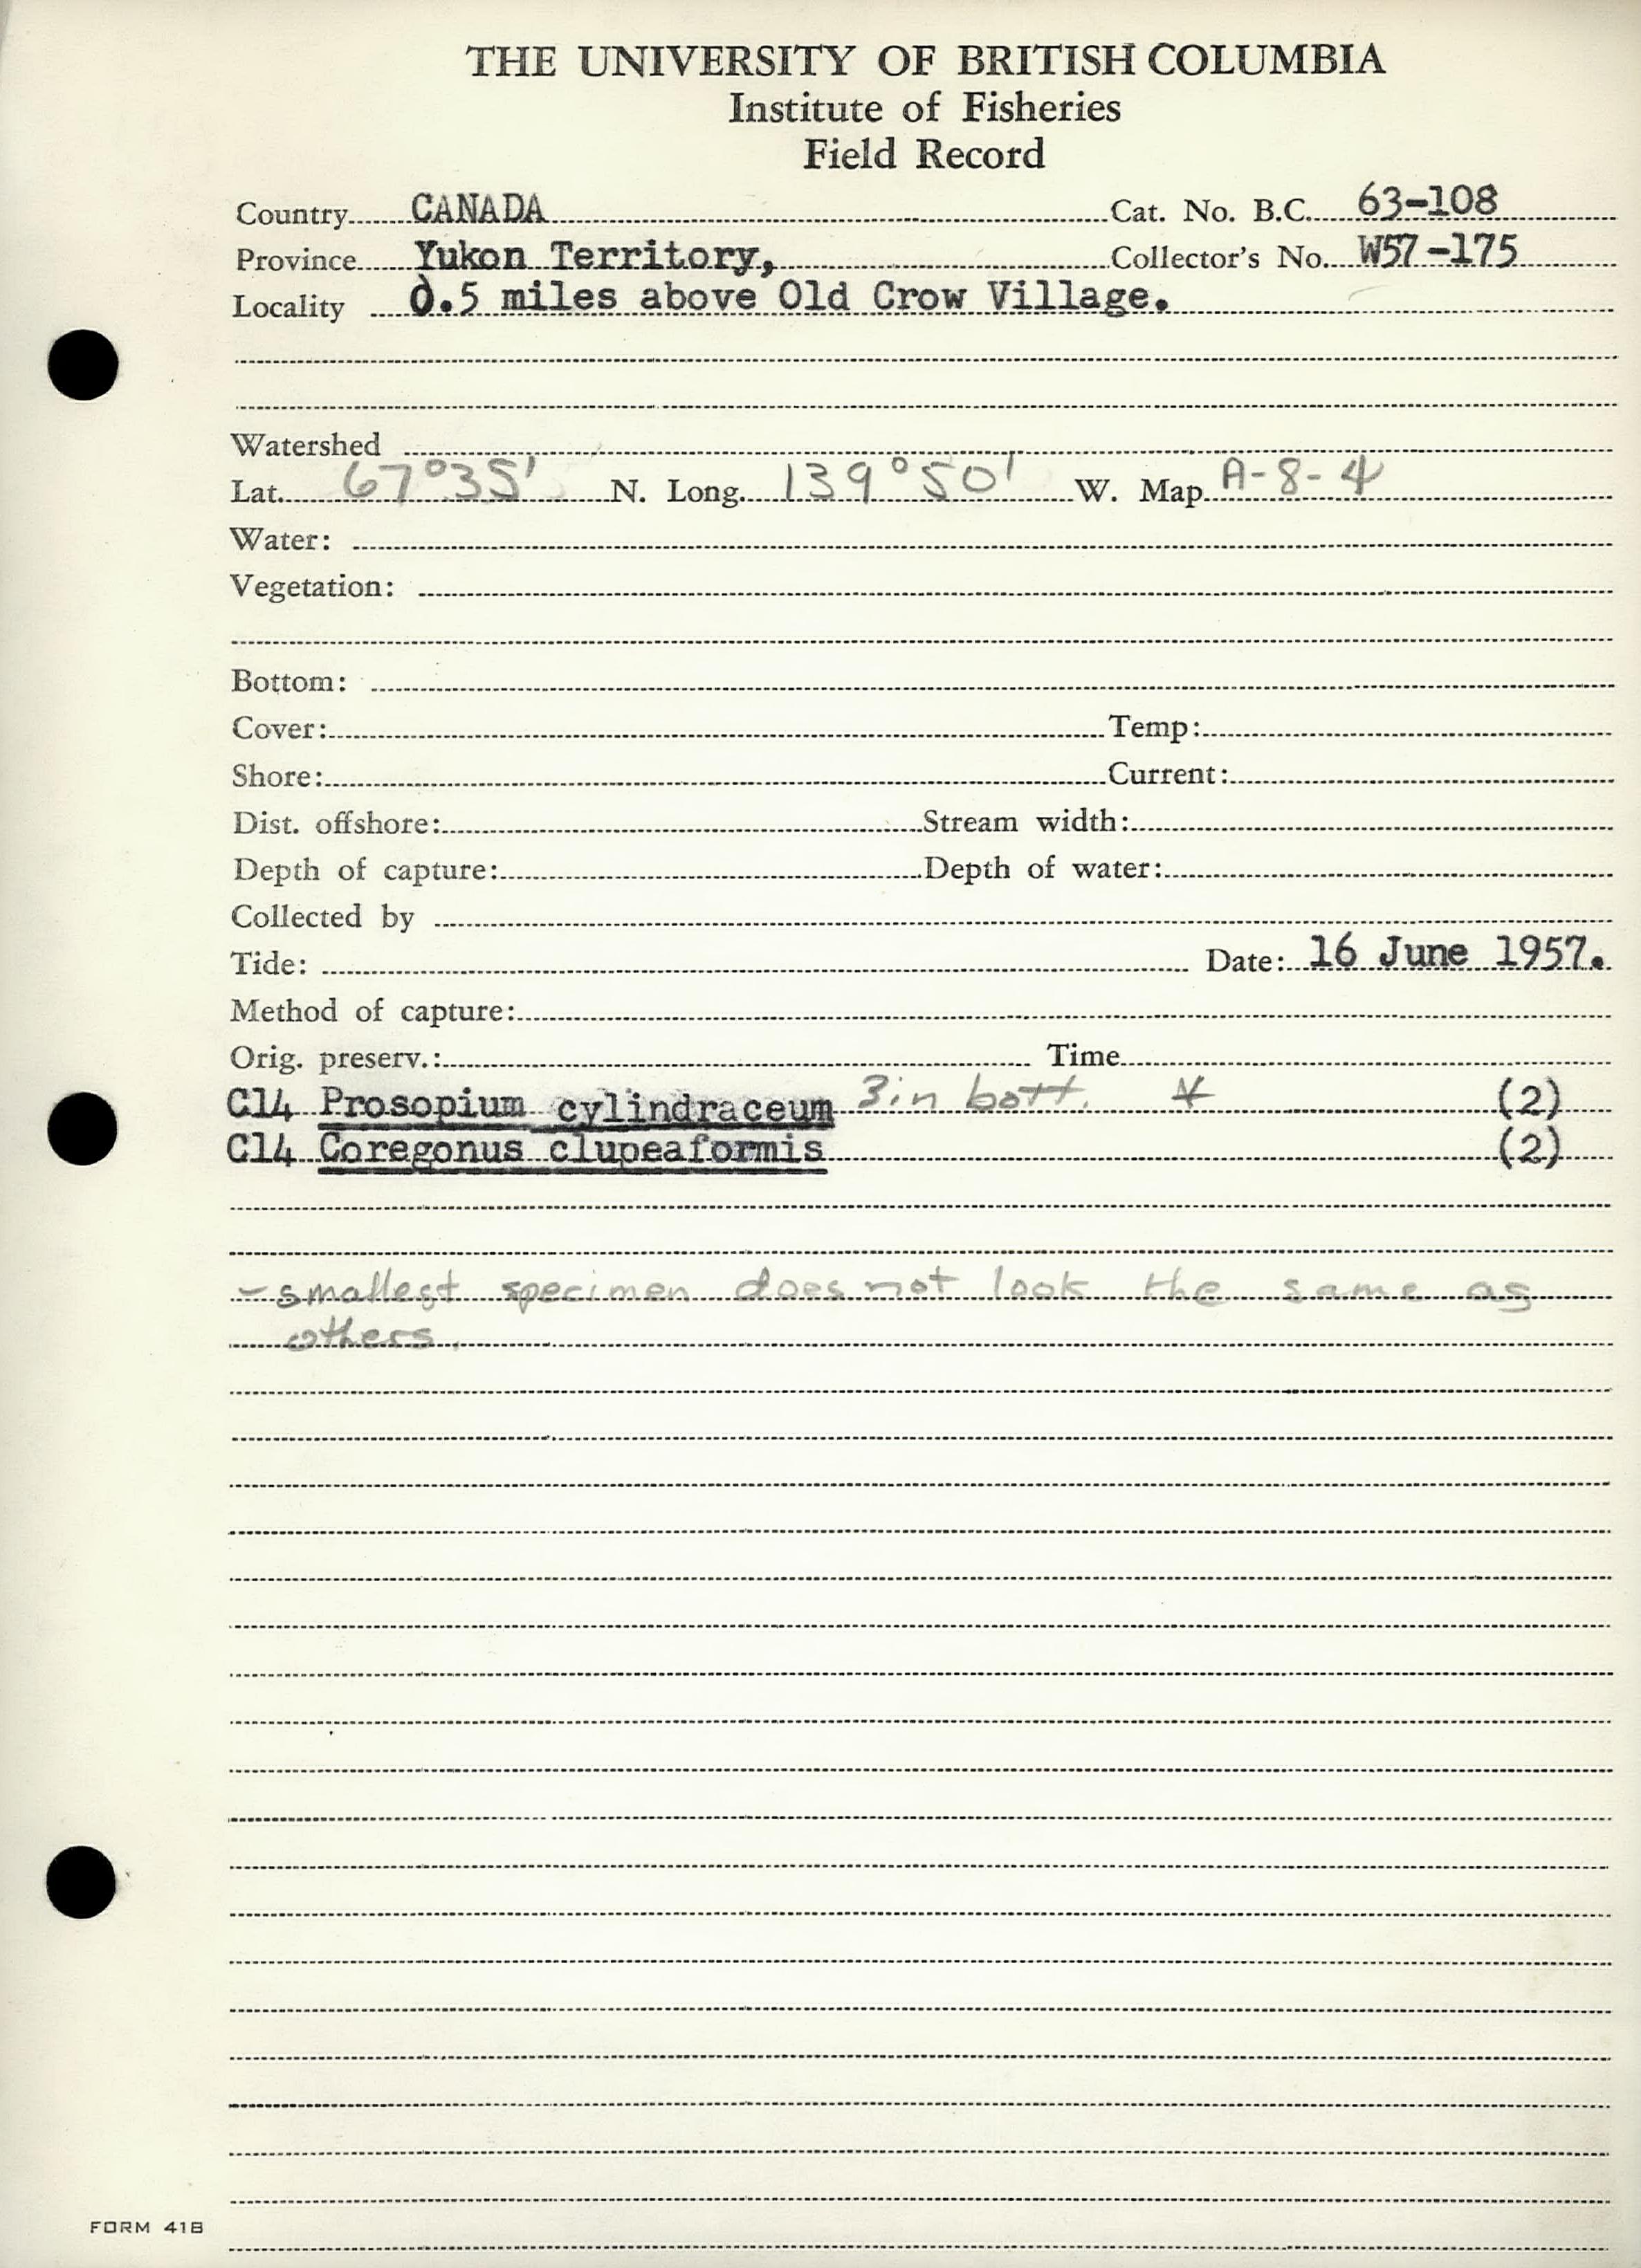 THE UNIVERSITY OF BRITISH COLUMBIA
Institute of Fisheries
Field Record
Country CANADA Cat. No. B.C. 63-108
Province Yukon Territory, Collector's No. W57-175
Locality 0.5 miles above Old Crow Village.
Watershed
Lat. 67°35' N. Long. 139°50' W. Map A-8-4
Water:
Vegetation:
Bottom:
Cover: Temp:
Shore: Current:
Dist. offshore: Stream width:
Depth of capture: Depth of water:
Collected by
Tide: Date: 16 June 1957.
Method of capture:
Orig. preserv.: Time
C14 Prosopium cylindraceum 3 in bott. * (2)
C14 Coregonus clupeaformis (2)
- smallest specimen does not look the same as
others.
FORM 41B